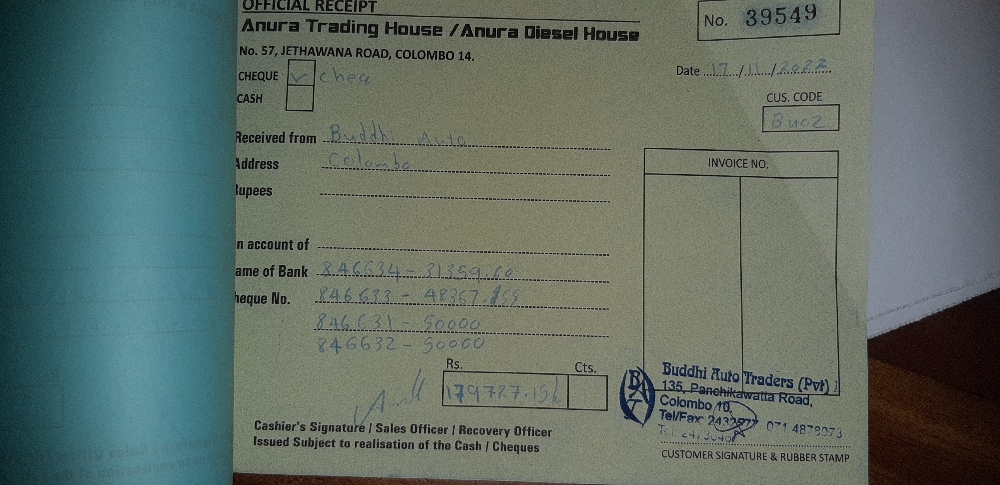 OFFICIAL RECEIPT
No. 39549
Anura Trading House / Anura Diesel House
No. 57, JETHAWANA ROAD, COLOMBO 14.
Date 17/11/2022
CHEQUE ✓ cheq
CASH
CUS. CODE
Bu02
Received from Buddhi Auto
Address Colombo
INVOICE NO.
upees
n account of
ame of Bank 846634 - 31359.60
heque No. 846633 - 48367.
846631 - 50000
846632 - 50000
Rs. Cts.
Buddhi Auto Traders (Pvt)
135, Panchikawatta Road,
Colombo 10.
Tel/Fax 2432977 071 4879073
Cashier's Signature / Sales Officer / Recovery Officer
Issued Subject to realisation of the Cash / Cheques
CUSTOMER SIGNATURE & RUBBER STAMP